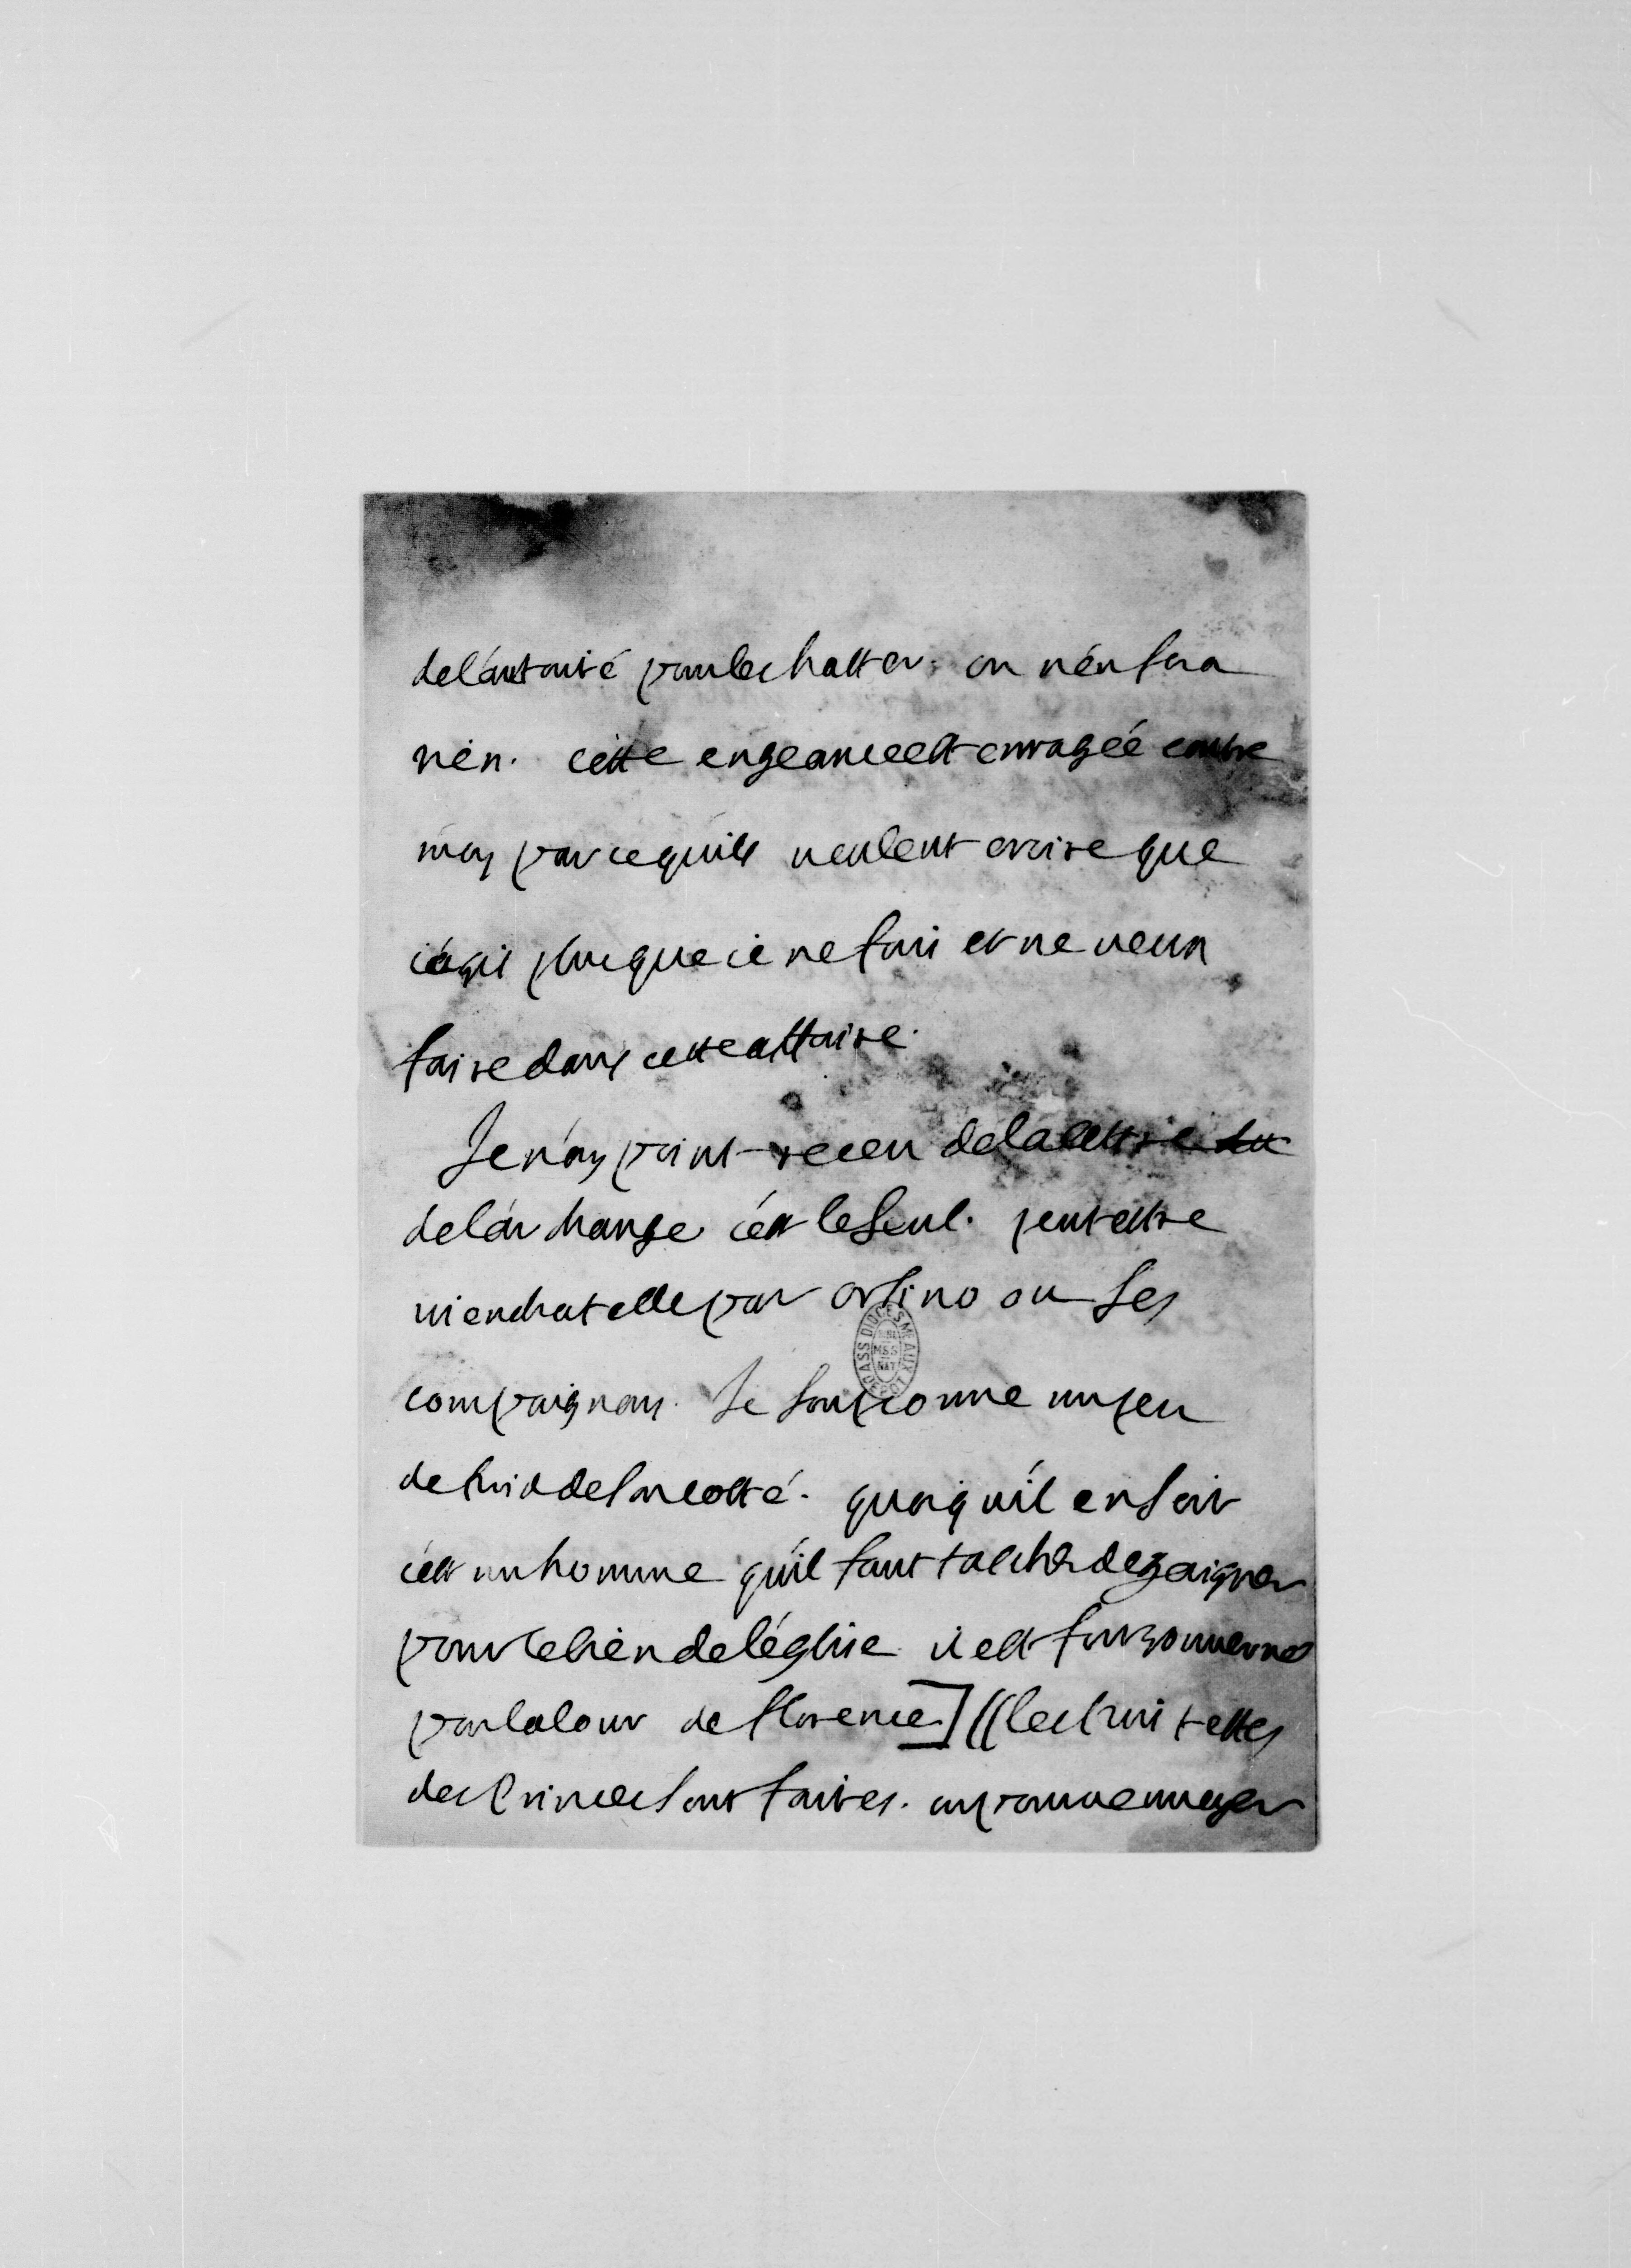 de l'autorité pour les chasser. on n'en fera
rien. cette engeance est enragée contre
moy parce qu'ils veulent croire que
i'agis plus que ie ne fais et ne veux
faire dans cette affaire.
Je n'ay point receu de la lettre
de l'archange c'est le seul. peutestre
viendrat elle par orsino ou ses
compaignons. Je soupçonne un peu
de froid de son costé. quoiqu'il en soit
c'est un homme qu'il faut tascher de gaigner
pour le bien de l'église il est fort gouverné
par la cour de florence] ((les
des Princes sont faites. on
ASS DIOCES MEAUX DEPOT
MSS
NAT